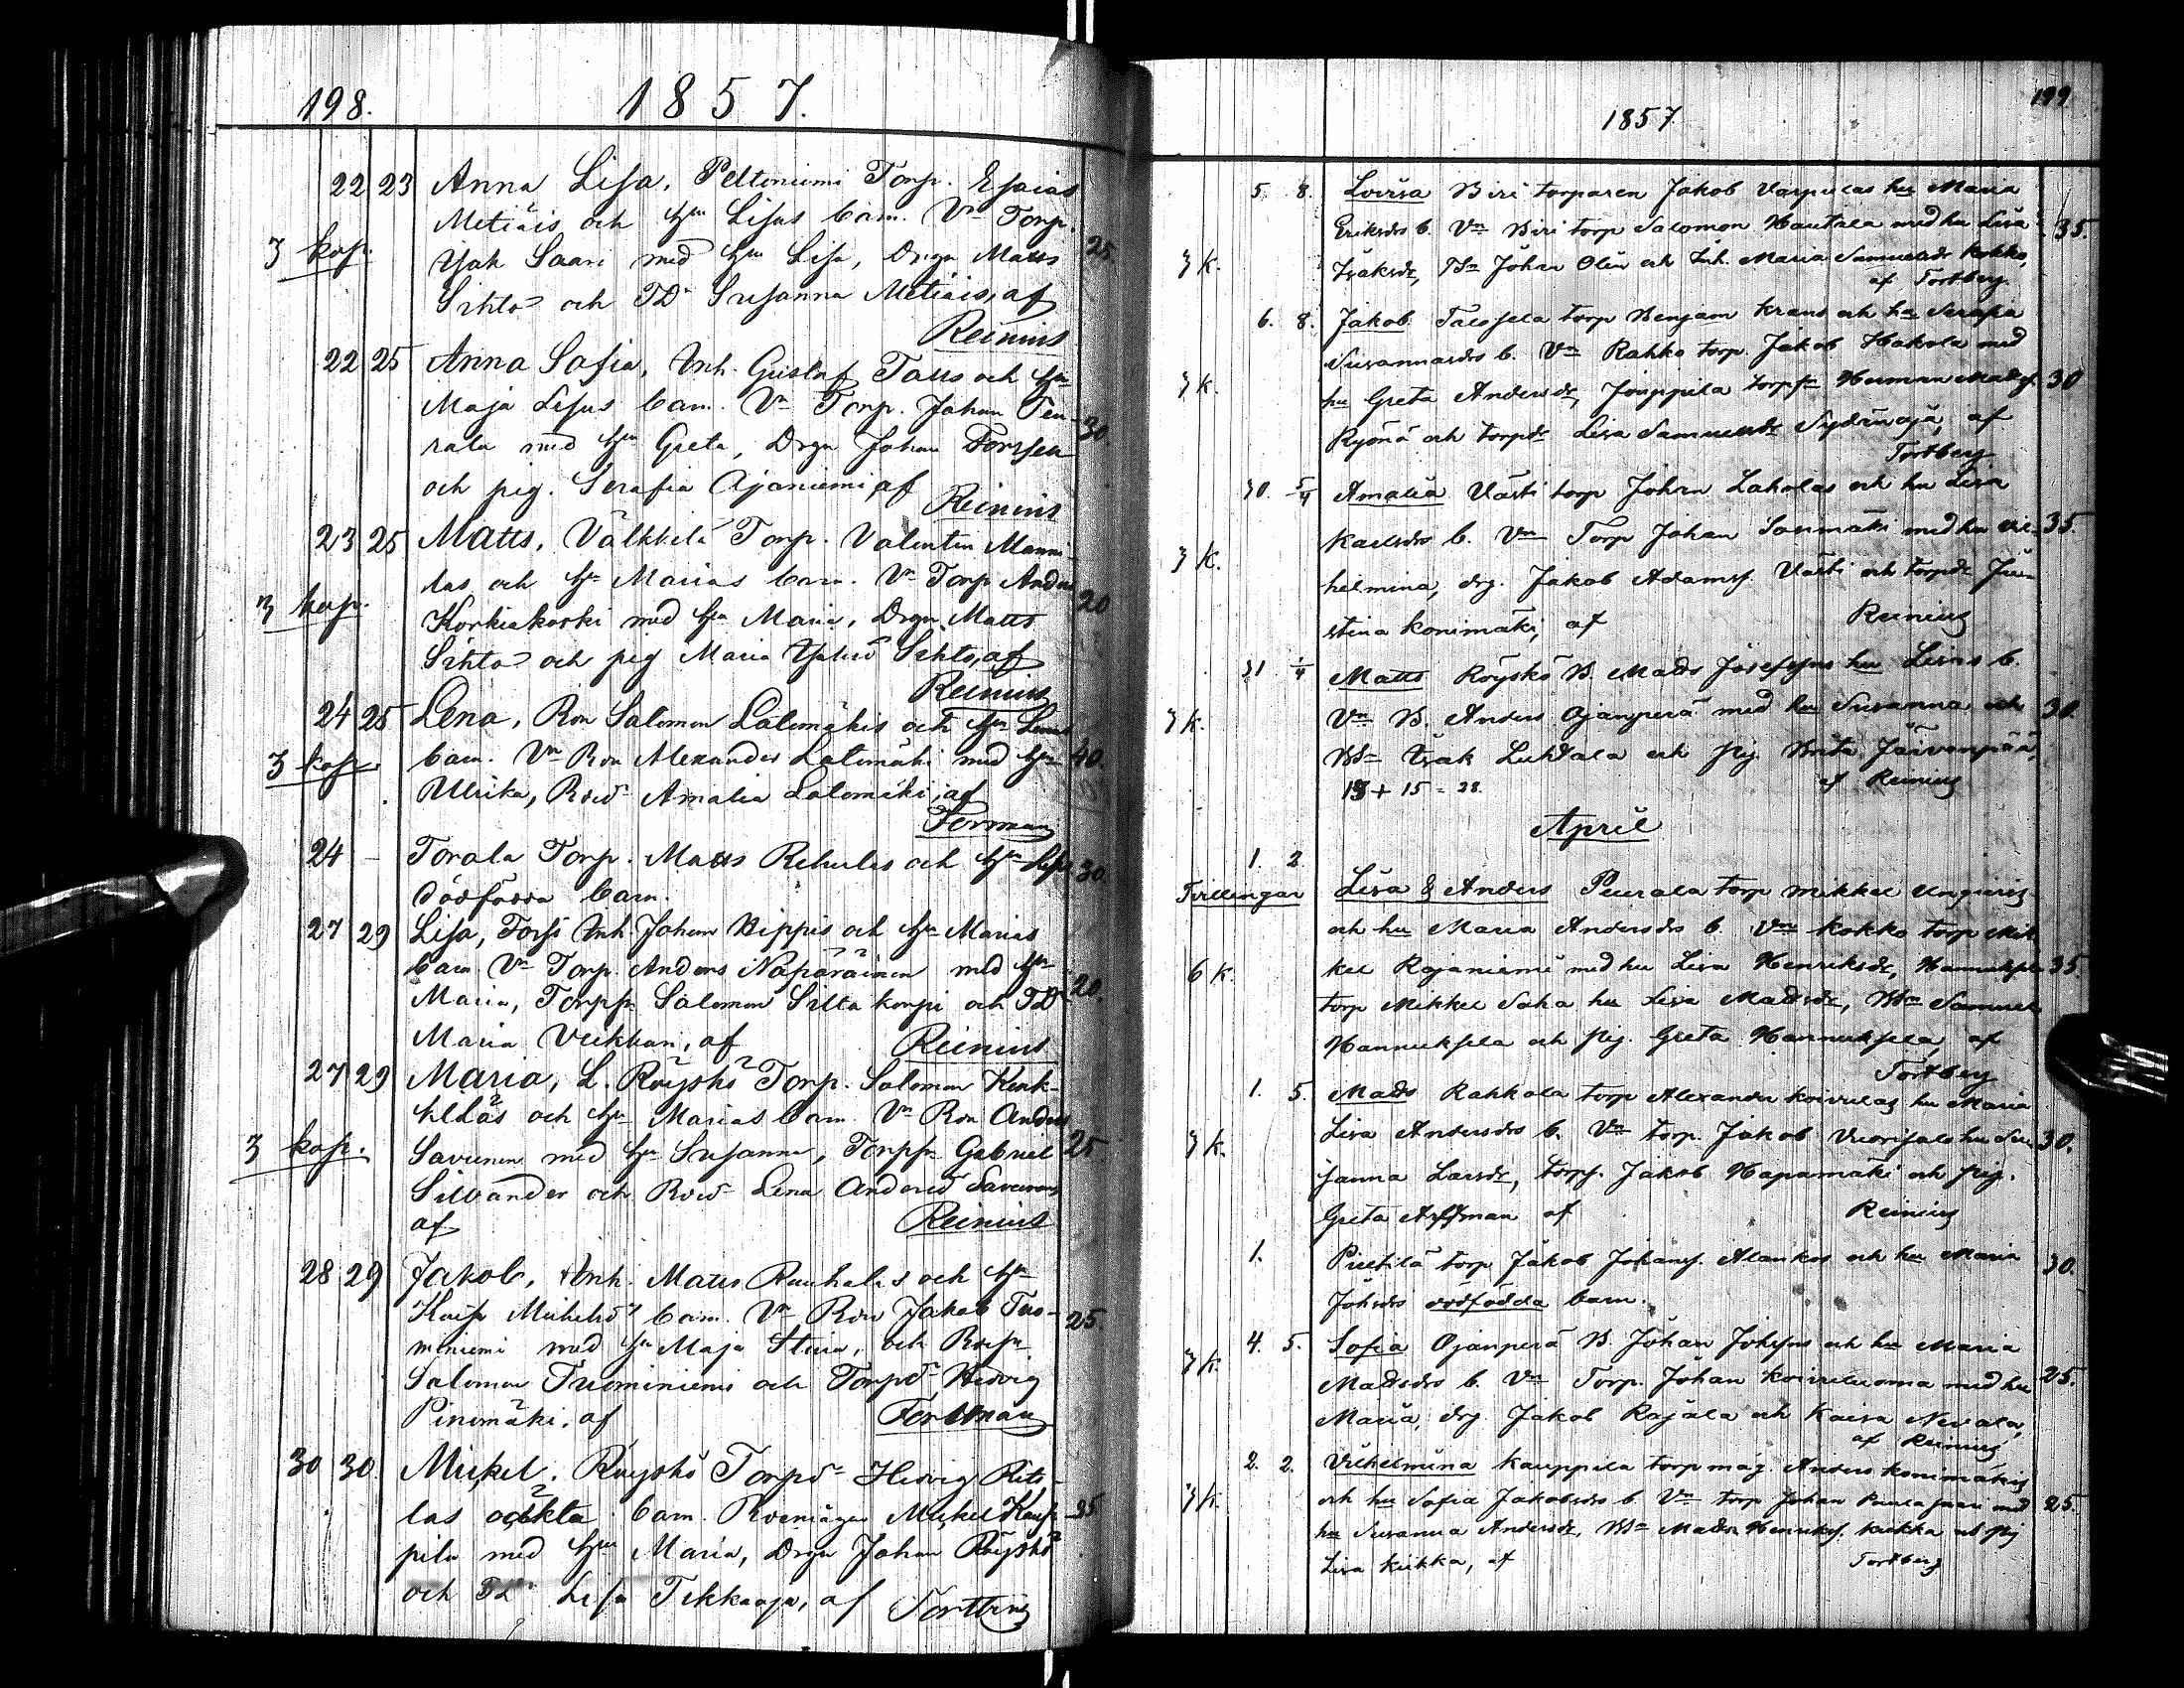 198. 1857.
22 23 Anna Lisa, Peltoniemi Torp. Esaias
Metiäis och hu Lisas barn. Vn Torp.
3 kop. Isak Saari med hu Lisa, Drgn Matts 25.
Sihto och TD Susanna Metiäis, af
Reinius
22 25 Anna Sofia, Inh. Gustaf Tatts och hu
Maja Lisas barn. Vn Torp. Johan Peu- 30.
rala med hu Greta, Drgn Johan Forssell
och pig. Serafia Ajaniemi, af
Reinius
23 25 Matts, Välkkilä Torp. Valentin Manni-
las och hu Marias barn. Vn Torp Anders 20
3 kop. Korkiakoski med hu Maria, Drgn Matts
Sihto och pig Maria Sihto, af
Reinius
24 25 Lena, Bon Salomon Latomäkis och hu Lenas
3 kop. barn. Vn Bon Alexander Latomäki med hu 40.
Ulrika, Bond Amalia Latomäki, af
Forsman
24 – Torala Torp. Matts och hu Lisas 30.
dödfödda barn.
27 29 Lisa, Inh. Johan Hippis och hu Marias
barn Vn Torp. Anders Napäräinen med hu 20.
Maria, Torpps. Salomon Siltakorpi och TD
Maria Veikkari, af Reinius
27 29 Maria, L. Röyskö Torp. Salomon Kenk-
kiläs och hu Marias barn. Vn Bon Anders
3 kop. Savunen med hu Susanna, Torpps. Gabriel 25
Silvander och Bond Lena Andersd Savunen
af Reinius
28 29 Jakob, Inh. Matts Ruuhalas och hu
Kaisa Mickelsds barn. Vn Bon Jakob Tuo- 25.
miniemi med hu Maja Stina, och Bons.
Salomon Tuominiemi och Torpd. Hedvig
Pinomäki, af Forsman
30 30 Mickel, Röyskö Torpd. Hedvig
las oäkta barn. Mickel Kaup- 35
pila med hu Maria, Drgn Johan Röyskö
och TD Lisa Tikkaoja, af Tortberg
1857 199
5. 8. Lovisa Biri torparen Jakob Varpulas hu Maria
Eriksds b. Vn Biri torp Salomon Hautala med hu Lisa 35.
3 k. Isaksdr, Bs Johan Olin och Inh. Maria Samuelsdr Kokko,
af Tortberg.
6. 8. Jakob torp Benjam Krans och hu Serafia
Susannasds b. Vn Rahko torp. Jakob Hakola med
3 k. hu Greta Andersdr, Jouppila torpps Herman Matss. 30
Ryönä och torpdr Lisa Samuelsdr Sydänoja, af
Tortberg
30. 5/4 Amalia Västi torp Johan Laholas och hu Lisa
Karlsds b. Vn Torp Johan Sarimäki med hu Vil- 35.
3 k. helmina, drg. Jakob Adamss. Västi och torpdr Ju-
stina Konimäki, af Reinius
31 1/4 Matts Röyskö B. Matts Josefssons hu Lisas b.
3 k. Vn B. Anders Ojanperä med hu Susanna och 30.
Bs Isak Luhtala och pig. Brita Järvenpää,
13 + 15 = 28. af Reinius
April
1. 2.
Tvillingar Lisa & Anders Peurala torp Mikkel Ungerig
och hu Maria Andersds b. Vn Kokko torp Mik-
6 k. kel Rajaniemi med hu Lisa Henriksdr, Hannuksela 35
torp Mikkel Saha hu Lisa Mattsdr, Bs Samuel
Hannuksela och pig. Greta Hannuksela, af
Tortberg
1. 5. Matts Rahkola torp Alexander Koivulas hu Maria
Lisa Andersds b. Vn torp. Jakob hu Su- 30.
3 k. sanna Larsdr, torps. Jakob Hapamäki och pig.
Greta Arffman af Reinius
1. Pietilä torp Jakob Johanss. Alankos och hu Maria 30.
Johsds dödfödda barn.
4. 5. Sofia Ojanperä B. Johan Johssons och hu Maria
3 k. Mattsds b. Vn Torp. Johan Koivuluoma med hu 25.
Maria, drg. Jakob Rajala och Kaisa Nevala,
af Reinius
2. 2. Vilhelmina Kauppila torpmåg. Anders Konimäkis
3 k. och hu Sofia Jakobsds b. Vn torp Johan med 25.
hu Susanna Andersdr, Bs Matts Henrikss. Kiikka och pig
Lisa Kiikka, af Tortberg